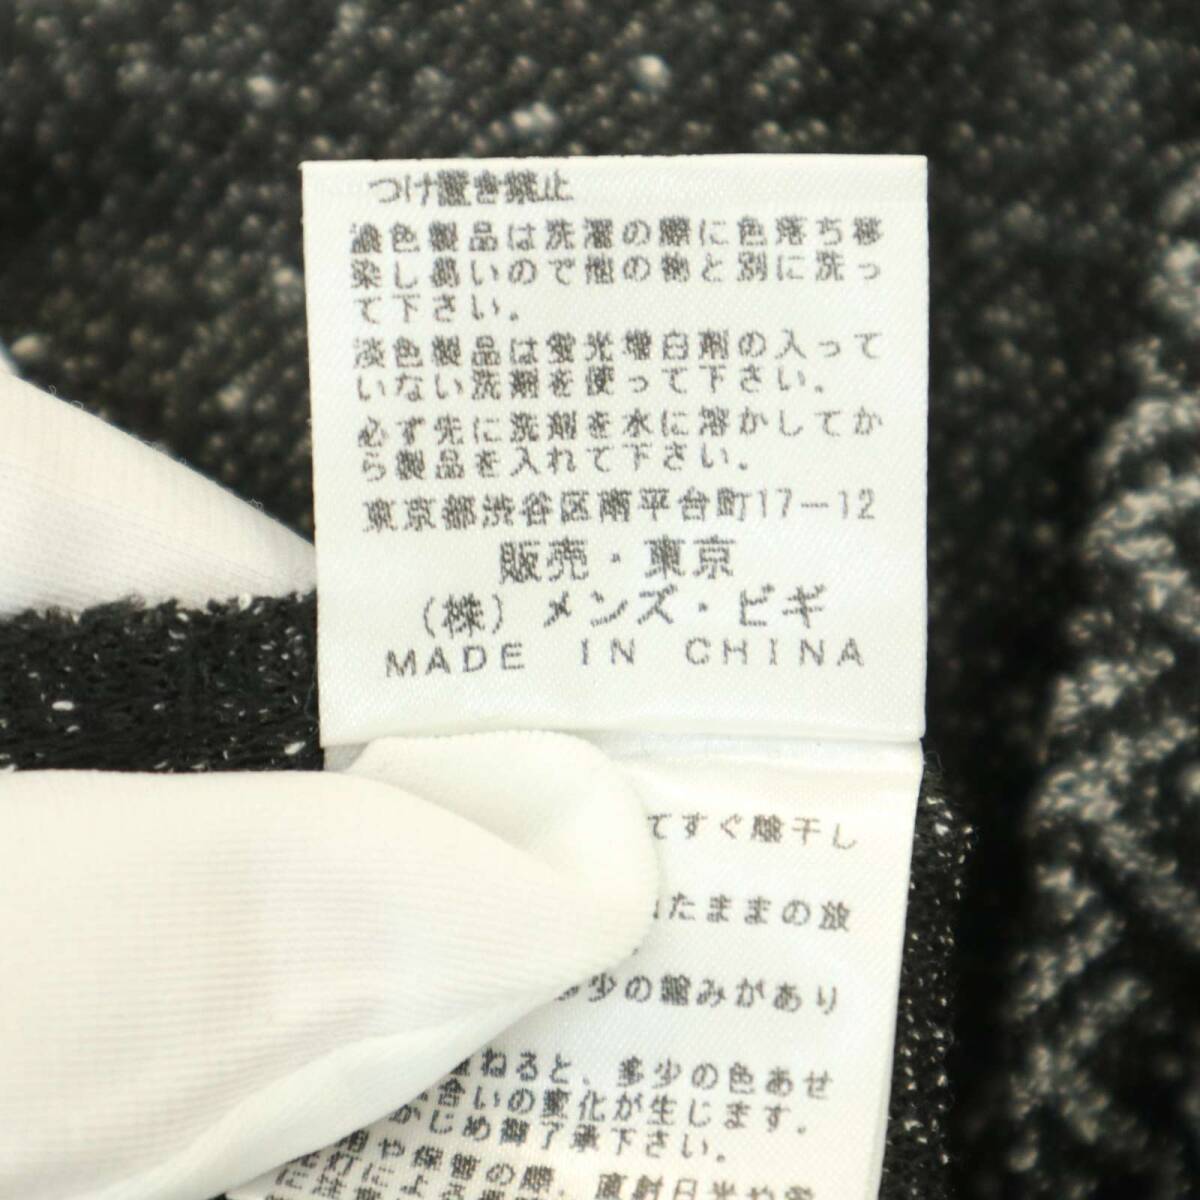 つけ置き禁止
濃色製品は洗濯の際に色落ち移
染し易いので他の物と別に洗っ
て下さい。
淡色製品は蛍光増白剤の入って
いない洗剤を使って下さい。
必ず先に洗剤を水に溶かしてか
ら製品を入れて下さい。
東京都渋谷区南平台町17－12
販売・東京
（株）メンズ・ビギ
MADE IN CHINA
てすぐ陰干し
たままの放
少の縮みがあり
ねると、多少の色あせ
合いの変化が生じます。
じめ御了承下さい。
や保管の際、直射日光や蛍
灯による